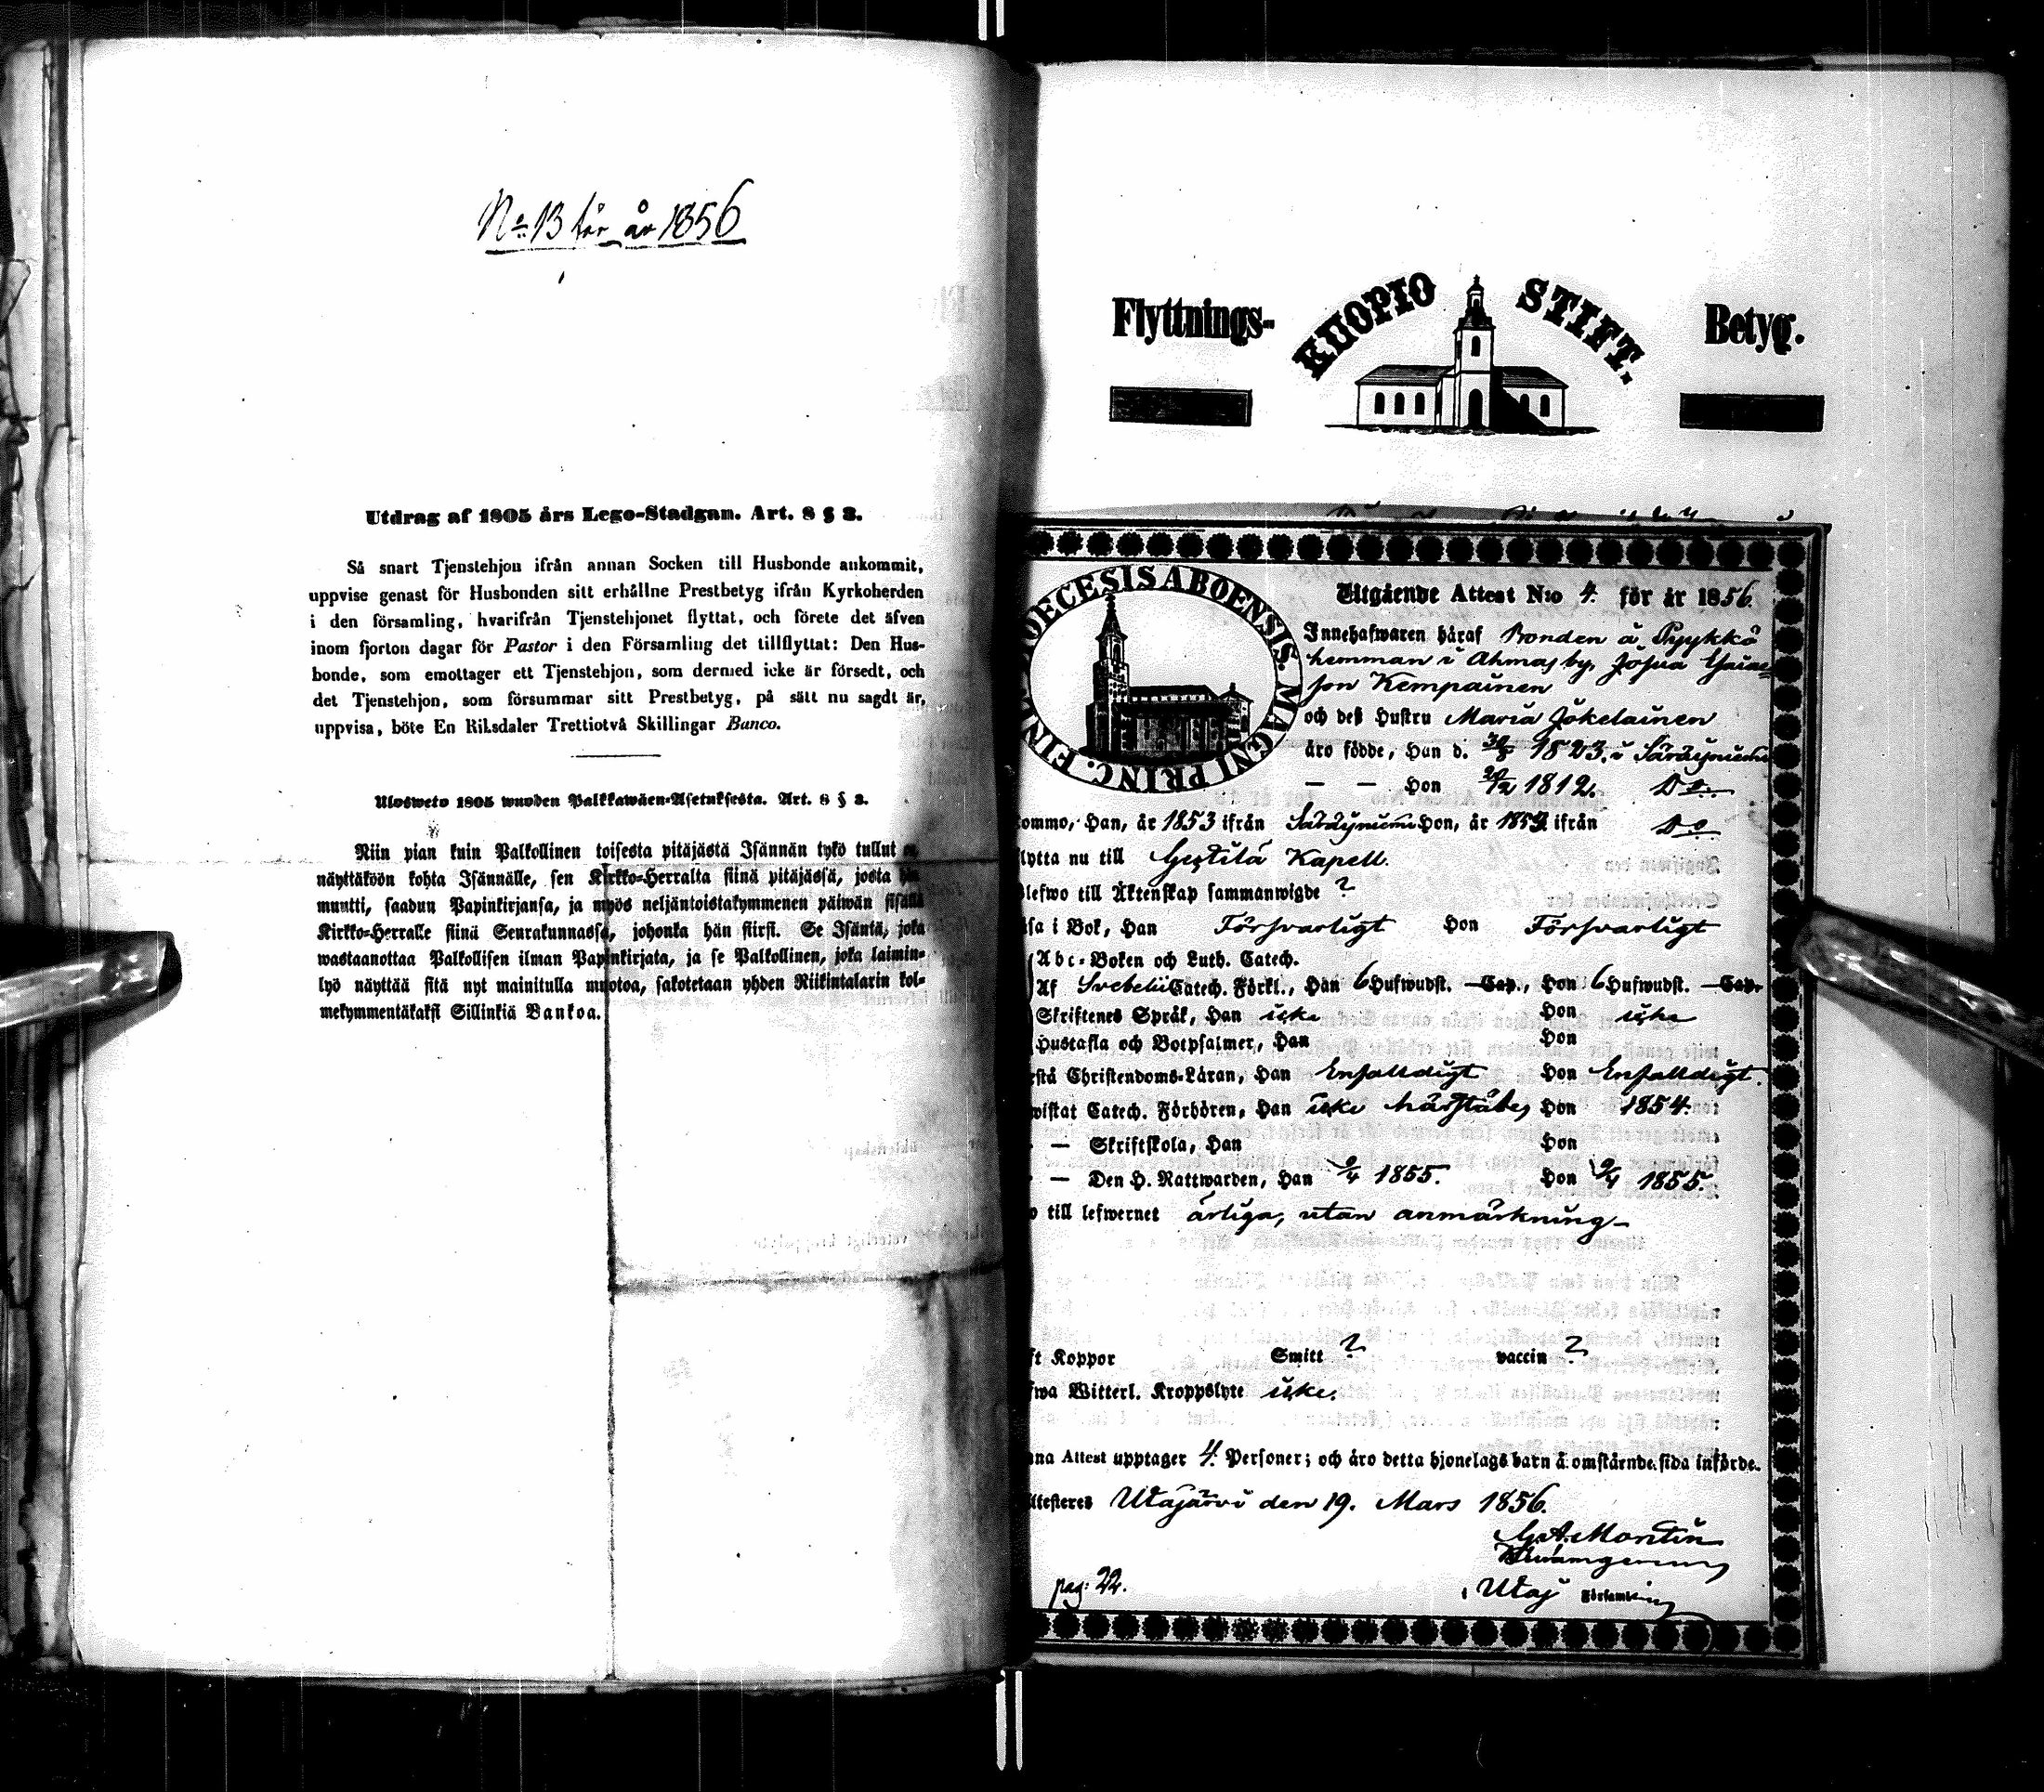 No 13 för år 1856
Utdrag af 1805 års Lego-Stadgan. Art. 8 § 3.
Så snart Tjenstehjon ifrån annan Socken till Husbonde ankommit,
uppvise genast för Husbonden sitt erhållne Prestbetyg ifrån Kyrkoherden
i den församling, hvarifrån Tjenstehjonet flyttat, och förete det äfven
inom fjorton dagar för Pastor i den Församling det tillflyttat: Den Hus-
bonde, som emottager ett Tjenstehjon, som dermed icke är försedt, och
det Tjenstehjon, som försummar sitt Prestbetyg, på sätt nu sagdt är,
uppvisa, böte En Riksdaler Trettiotvå Skillingar Banco.
Ulosweto 1805 wuoden Palkkawäen-Asetuksesta. Art. 8 § 3.
Niin pian kuin Palkollinen toisesta pitäjästä Isännän tykö tullut
näyttäköön kohta Isännälle, sen Kirkko-Herralta siinä pitäjässä, josta
muutti, saadun Papinkirjansa, ja myös neljäntoistakymmenen päiwän sisällä
Kirkko-Herralle siinä Seurakunnassa, johonka hän siirsi. Se Isäntä, joka
wastaanottaa Palkollisen ilman Papinkirjata, ja se Palkollinen, joka laimin-
lyö näyttää sitä nyt mainitulla muotoa, sakotetaan yhden Riikintalarin kol-
mekymmentäkaksi Sillinkiä Bankoa.
Flyttnings- KUOPIO STIFT. Betyg.
DIOECESIS ABOENSIS. MAGNI PRINC. FINL
Utgående Attest N:o 4. för år 1856.
Innehafwaren häraf Bonden å Pyykkö
hemman i Ahmas by, Josua
son Kempainen
och deß Hustru Maria Jokelainen
äro födde, Han d. 30/8 1823. i Säräisniemi
— — Hon 1812. Do
kommo, Han, år 1853 ifrån Säräisniemi Hon, år ifrån Do
flytta nu till Gestilä Kapell.
blefwo till Äktenskap sammanwigde ?
läsa i Bok, Han Försvarligt Hon Försvarligt
Abc-Boken och Luth. Catech.
Af Svebelii Catech. Förkl., Han 6 Hufwudst. Cap., Hon 6 Hufwudst. Cap.
Skriftenes Språk, Han icke Hon icke
Hustafla och Botpsalmer, Han Hon
rstå Christendoms-Läran, Han Enfalldigt Hon Enfalldigt.
wistat Catech. Förhören, Han icke härstädes Hon 1854.
— Skriftskola, Han Hon
— Den H. Nattwarden, Han 9/4 1855. Hon 9/4 1855.
till lefwernet ärliga, utan anmärkning
ft Koppor Smitt ? vaccin ?
fwa Witterl. Kroppslyte icke.
nna Attest upptager 4. Personer; och äro detta hjonelags barn å omstående sida införde.
Attesteres Utajärvi den 19. Mars 1856.
pag: 22.
i Utaj Församling